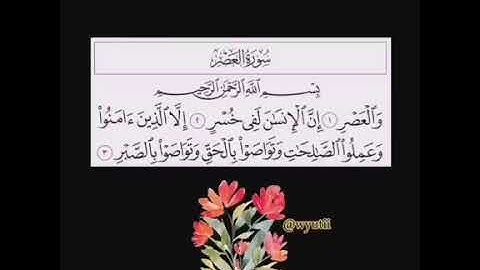 سُورَةُ الْعَصْرِ
بِسْمِ اللَّهِ الرَّحْمَٰنِ الرَّحِيمِ
وَالْعَصْرِ ١ إِنَّ الْإِنسَانَ لَفِي خُسْرٍ ٢ إِلَّا الَّذِينَ ءَامَنُوا
وَعَمِلُوا الصَّالِحَاتِ وَتَوَاصَوْا بِالْحَقِّ وَتَوَاصَوْا بِالصَّبْرِ ٣
@wyutii